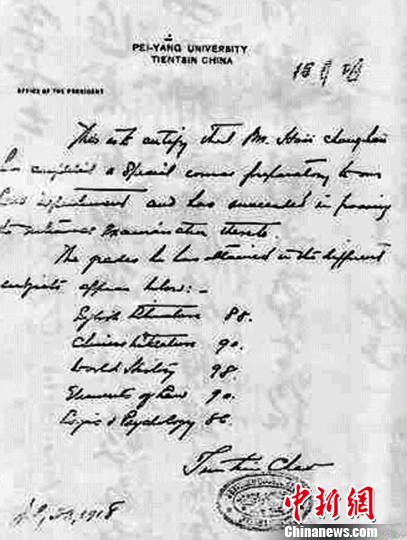 PEI-YANG UNIVERSITY
TIENTSIN CHINA
OFFICE OF THE PRESIDENT
This is to certify that Mr. Hsü
has completed a special course preparatory to our
Law department and has succeeded in passing
the entrance examination thereto.
The grades he has attained in the different
subjects appear below:-
English literature 88.
Chinese literature 90.
World History 98.
Elements of Law 90.
Logic & Psychology 86.
Tientsin
1918
中新网
Chinanews.com